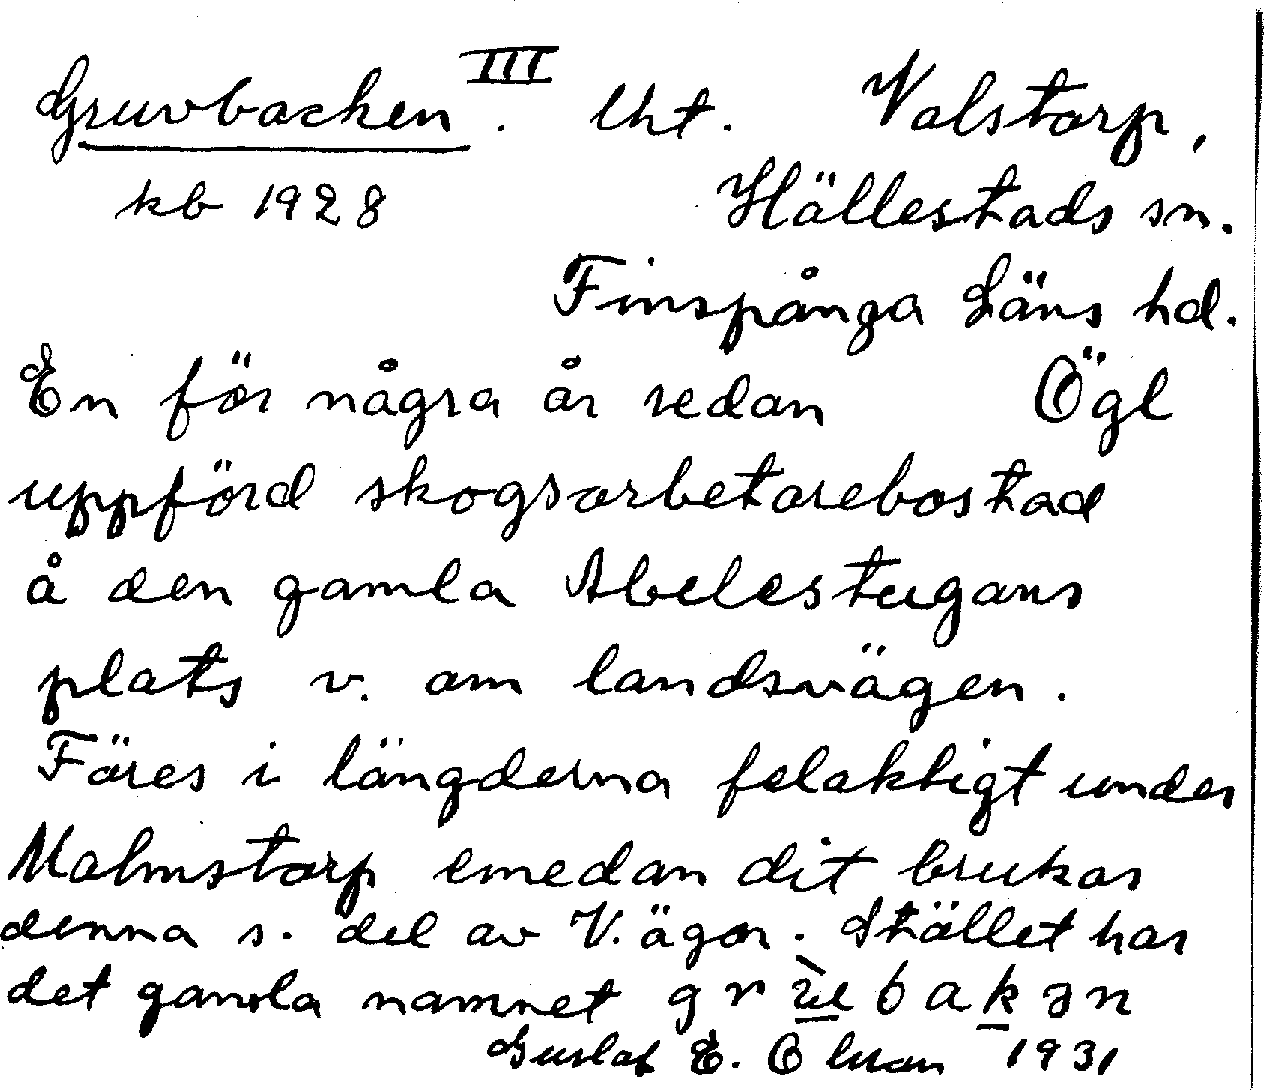 Gruvbacken III. lht. Valstorp,
kb 1928 Hällestads sn.
Finspånga Läns hd.
En för några år sedan Ögl
uppförd skogsarbetarebostad
å den gamla Abelestugans
plats v. om landsvägen.
Föres i längderna felaktigt under
Malmstorp emedan dit brukas
denna s. del av V. ägor. Stället har
det gamla namnet
Gustaf E. 1931